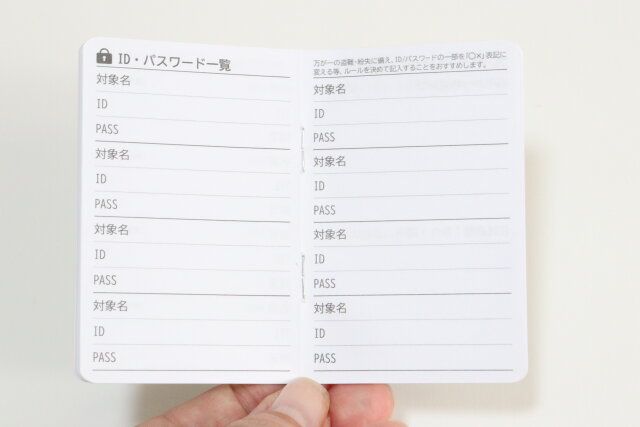 ID・パスワード一覧
対象名
ID
PASS
対象名
ID
PASS
対象名
ID
PASS
対象名
ID
PASS
万が一の盗難・紛失に備え、ID/パスワードの一部を「○×」表記に
変える等、ルールを決めて記入することをおすすめします。
対象名
ID
PASS
対象名
ID
PASS
対象名
ID
PASS
対象名
ID
PASS